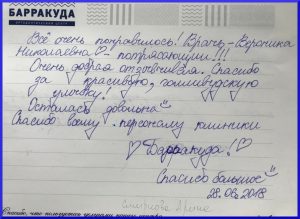 БАРРАКУДА
Всё очень понравилось! Врачь - Вероника
Николаевна ♡ - потрясающий!!!
Очень добрая отзывчивая. Спасибо
за красивую, голливудскую
улыбку!
Осталась довольна
Спасибо всему персоналу клиники
♡ Барракуда! ♡
Спасибо большое
28.06.2018
Смирнова Арина